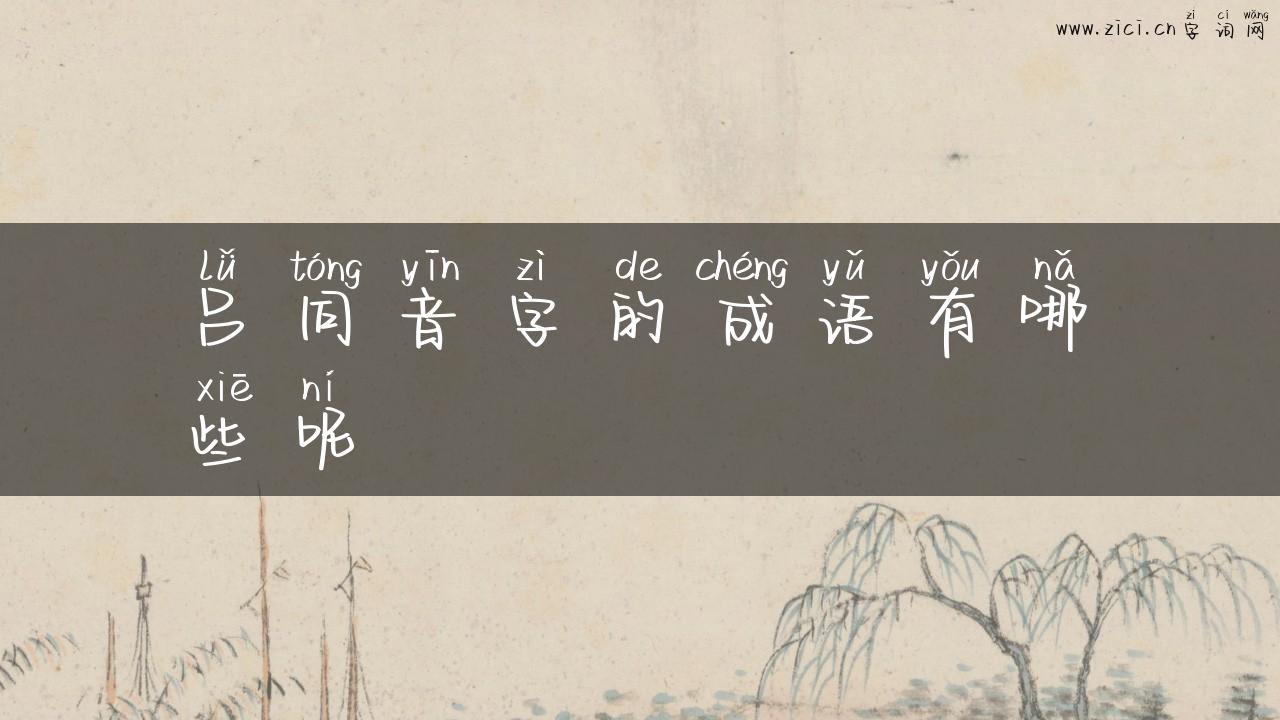 zì cí wǎng
www.zici.cn 字 词 网
lǚ tóng yīn zì de chéng yǔ yǒu nǎ
吕 同 音 字 的 成 语 有 哪
xiē ní
些 呢